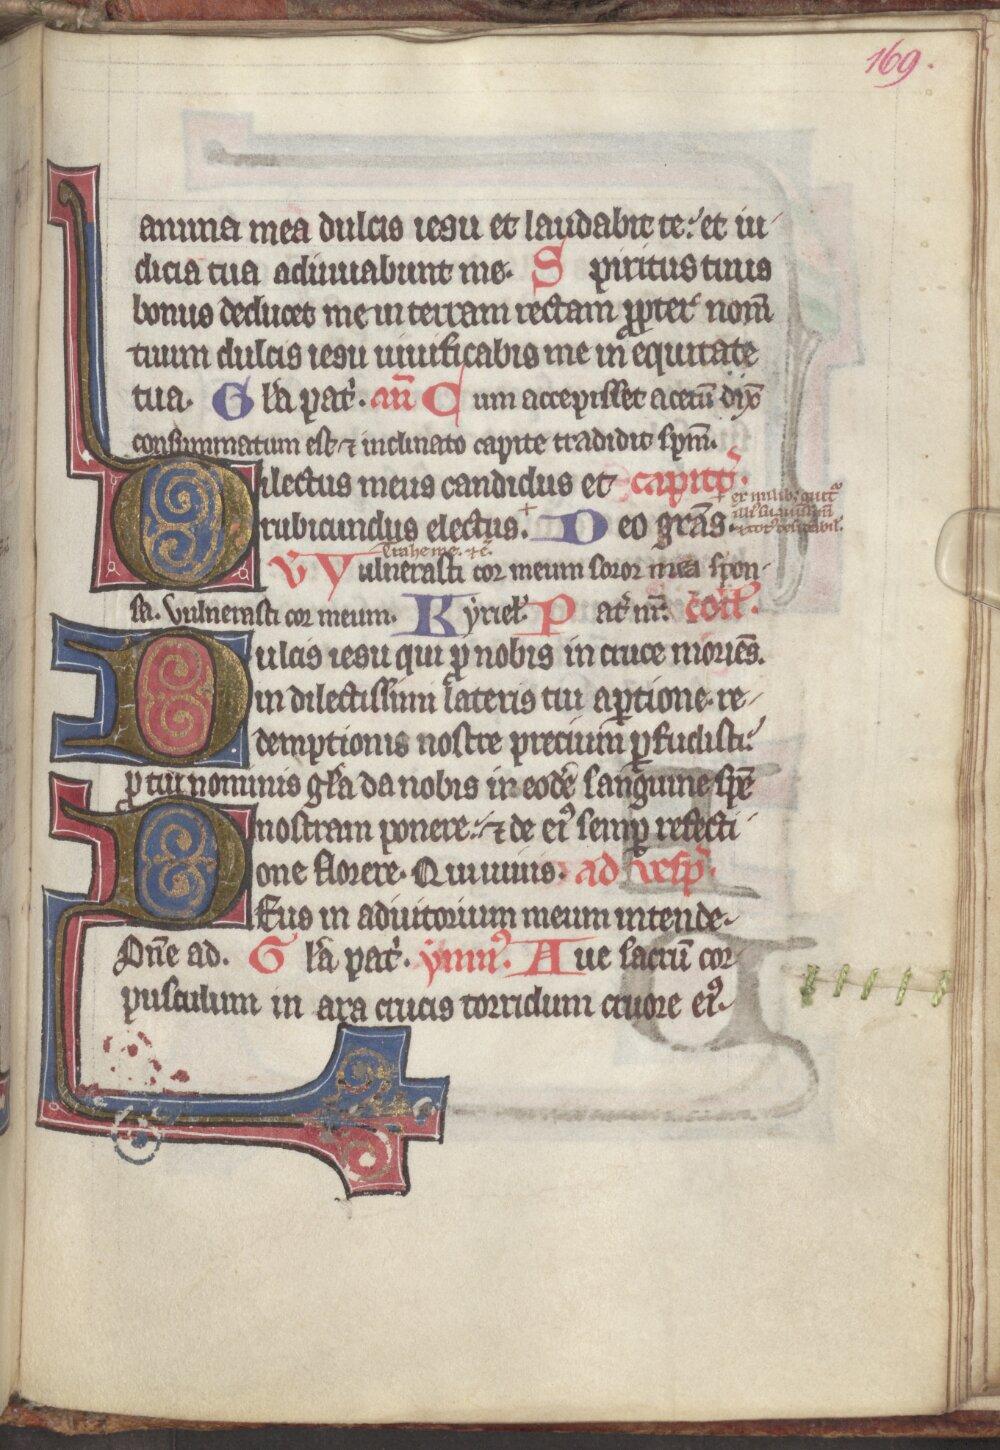 169.
anima mea dulcis iesu et laudabit te: et iu
dicia tua adiuuabunt me. Spiritus tuus
bonus deducet me in terram rectam ꝓpter nom̄
tuum dulcis iesu uiuificabis me in equitate
tua. Gl̄a pat̉. an̄ Cum accepisset acetū dix̄
consummatum est ⁊ inclinato capite tradidit sp̄m.
Dilectus meus candidus et capitł̉.
rubicundus electus.+ Deo gr̄as.
+ ex milib;
Trahe me. ⁊c̄.
V̉ Vulnerasti cor meum soror mea spon
sa. Vulnerasti cor meum. Kyriel̄. Pat̉ nr̄. coll̄.
Dulcis iesu qui ꝓ nobis in cruce moriēs.
in dilectissimi lateris tui aꝑtione. re
demptionis nostre precium ꝑfudisti:
ꝓ tui nominis gl̄a da nobis in eodē sanguine spē
nostram ponere: ⁊ de eiꝰ semꝑ refecti
one florere. Qui uiuis. ad uesp̄.
Deus in adiutorium meum intende.
Dn̄e ad. Gl̄a pat̉. ymnꝰ. Aue sacrū cor
pusculum in ara crucis torridum cruore eiꝰ.